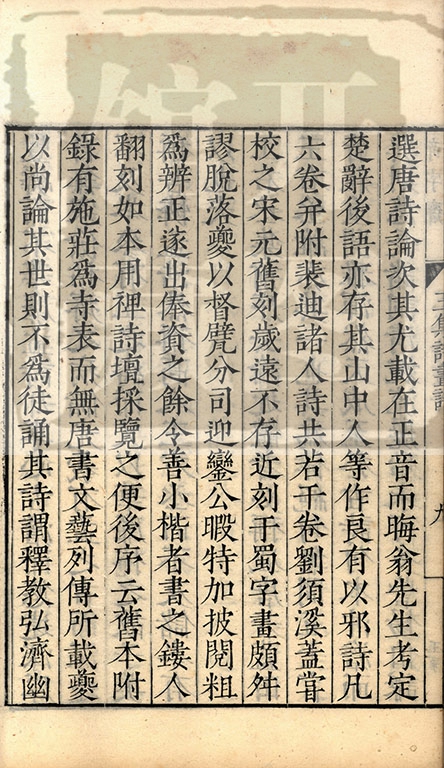 選唐詩論次其尤載在正音而晦翁先生考定
楚辭後語亦存其山中人等作良有以邪詩凡
六卷弁附裴迪諸人詩共若干卷劉須溪蓋嘗
校之宋元舊刻歲遠不存近刻于蜀字畫頗舛
謬脫落夔以督甓分司迎鑾公暇特加披閱粗
為辨正遂出俸資之餘令善小楷者書之鏤人
翻刻如本用裨詩壇採覽之便後序云舊本附
錄有施莊為寺表而無唐書文藝列傳所載夔
以尚論其世則不為徒誦其詩謂釋教弘濟幽